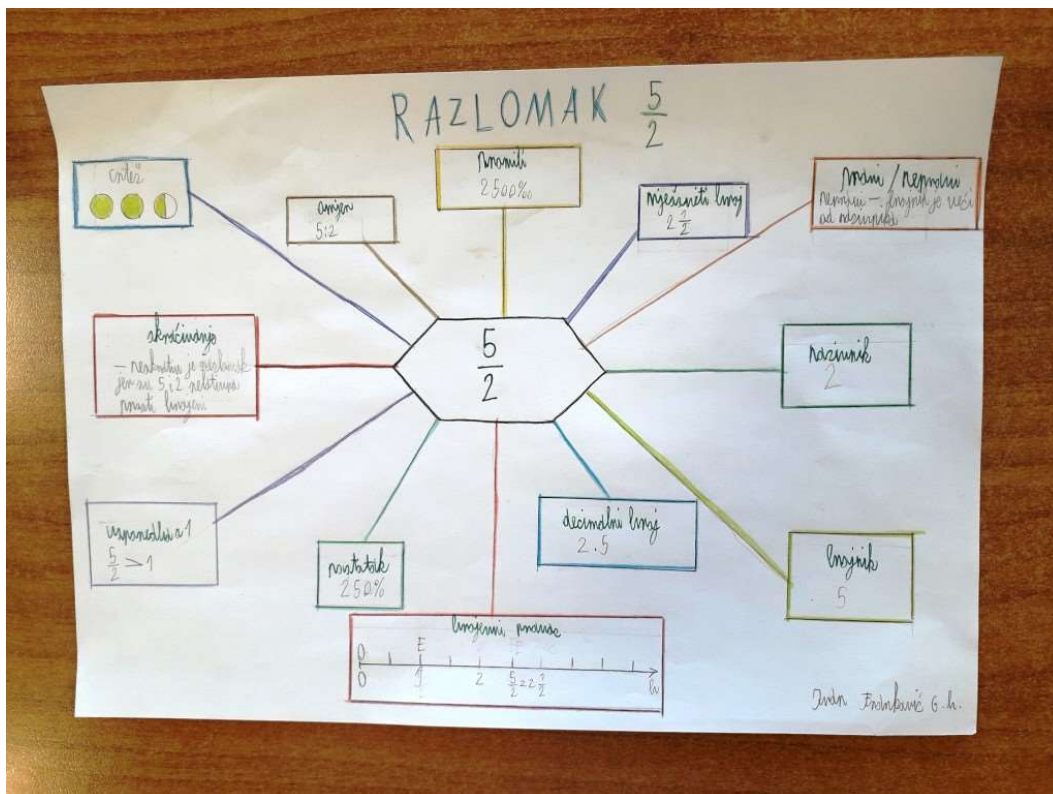 RAZLOMAK 5/2
crtež
omjer
5:2
promili
2500‰
mješoviti broj
2 1/2
pravi / nepravi
nepravi – brojnik je veći
od nazivnika
skraćivanje
– neskrativ je razlomak
jer su 5 i 2 relativno
prosti brojevi
5/2
nazivnik
2
usporedba s 1
5/2 > 1
postotak
250%
decimalni broj
2.5
brojnik
5
brojevni pravac
O E
0 1 2 5/2=2 1/2
Ivan 6.b.